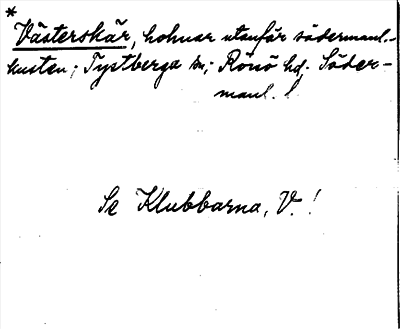 *
Västerskär, holmar utanför södermanl.-
kusten; Tystberga sn; Rönö hd. Söder-
manl. l
Se Klubbarna, V.!